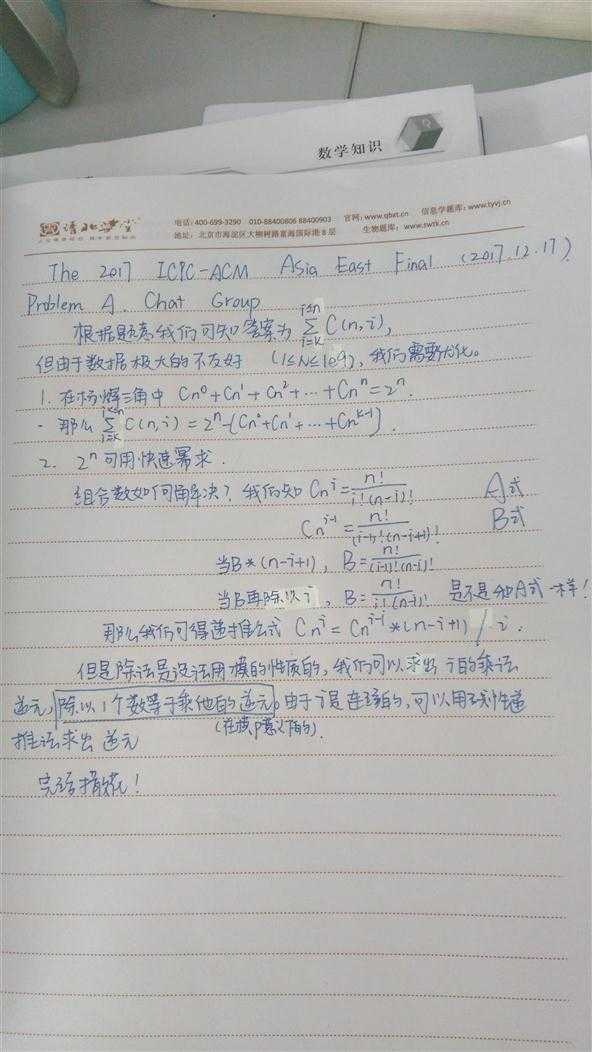 数学知识
清北学堂
电话:400-699-3290 010-88400806 88400903 官网:www.qbxt.cn 信息学题库:www.tyvj.cn
地址: 北京市海淀区大柳树路富海国际港8层 生物题库:www.swtk.cn
The 2017 ICPC-ACM Asia East Final (2017.12.17)
Problem A. Chat Group
根据题意我们可知答案为 ∑_{i=k}^{i≤n} C(n,i),
但由于数据极大的不友好 (1≤N≤1e9), 我们需要优化。
1. 在杨辉三角中 Cn^0+Cn^1+Cn^2+…+Cn^n=2^n.
· 那么 ∑_{i=k}^{i≤n} C(n,i)=2^n-(Cn^0+Cn^1+…+Cn^{k-1}).
2. 2^n可用快速幂求.
组合数如何解决? 我们知 Cn^i=n!/(i!(n-i)!) A式
Cn^{i-1}=n!/((i-1)!(n-i+1)!) B式
当B*(n-i+1), B=n!/((i-1)!(n-i)!)
当B再除以i, B=n!/(i!(n-i)!) 是不是和A式一样!
那么我们可得递推公式 Cn^i=Cn^{i-1}*(n-i+1)/i.
但是除法是没法用模的性质的, 我们可以求出i的乘法
逆元, 除以1个数等于乘他的逆元。由于i是连续的, 可以用线性递
推法求出逆元 (在模p意义下的).
完结撒花!